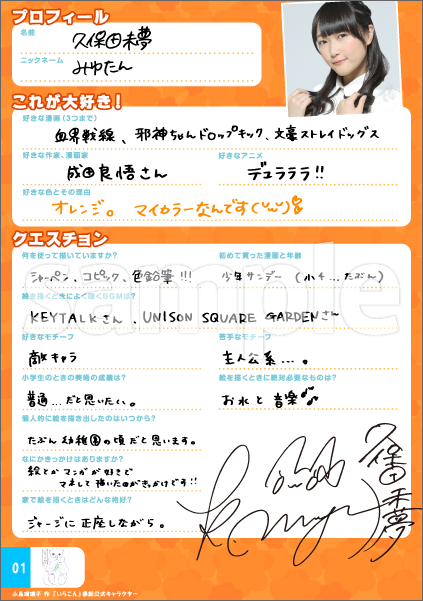 プロフィール
名前
久保田未夢
ニックネーム
みゆたん
これが大好き!
好きな漫画(3つまで)
血界戦線、邪神ちゃんドロップキック、文豪ストレイドッグス
好きな作家、漫画家
好きなアニメ
成田良悟さん
デュラララ!!
好きな色とその理由
オレンジ。マイカラーなんです
クエスチョン
何を使って描いていますか?
初めて買った漫画と年齢
シャーペン、コピック、色鉛筆!!!
少年サンデー (小4...たぶん)
絵を描くときによく聴くBGMは?
KEYTALKさん、UNISON SQUARE GARDENさん
好きなモチーフ
苦手なモチーフ
敵キャラ
主人公系...。
小学生のときの美術の成績は?
絵を描くときに絶対必要なものは?
普通...だと思いたい。
お水と音楽
個人的に絵を描き出したのはいつから?
たぶん幼稚園の頃だと思います。
なにかきっかけはありますか?
絵とかマンガが好きで
マネして描いたのがきっかけです!!
家で絵を描くときはどんな格好?
ジャージに正座しながら。
久保田未夢
sample
01
小鳥遊瑠子 作「いらこん」